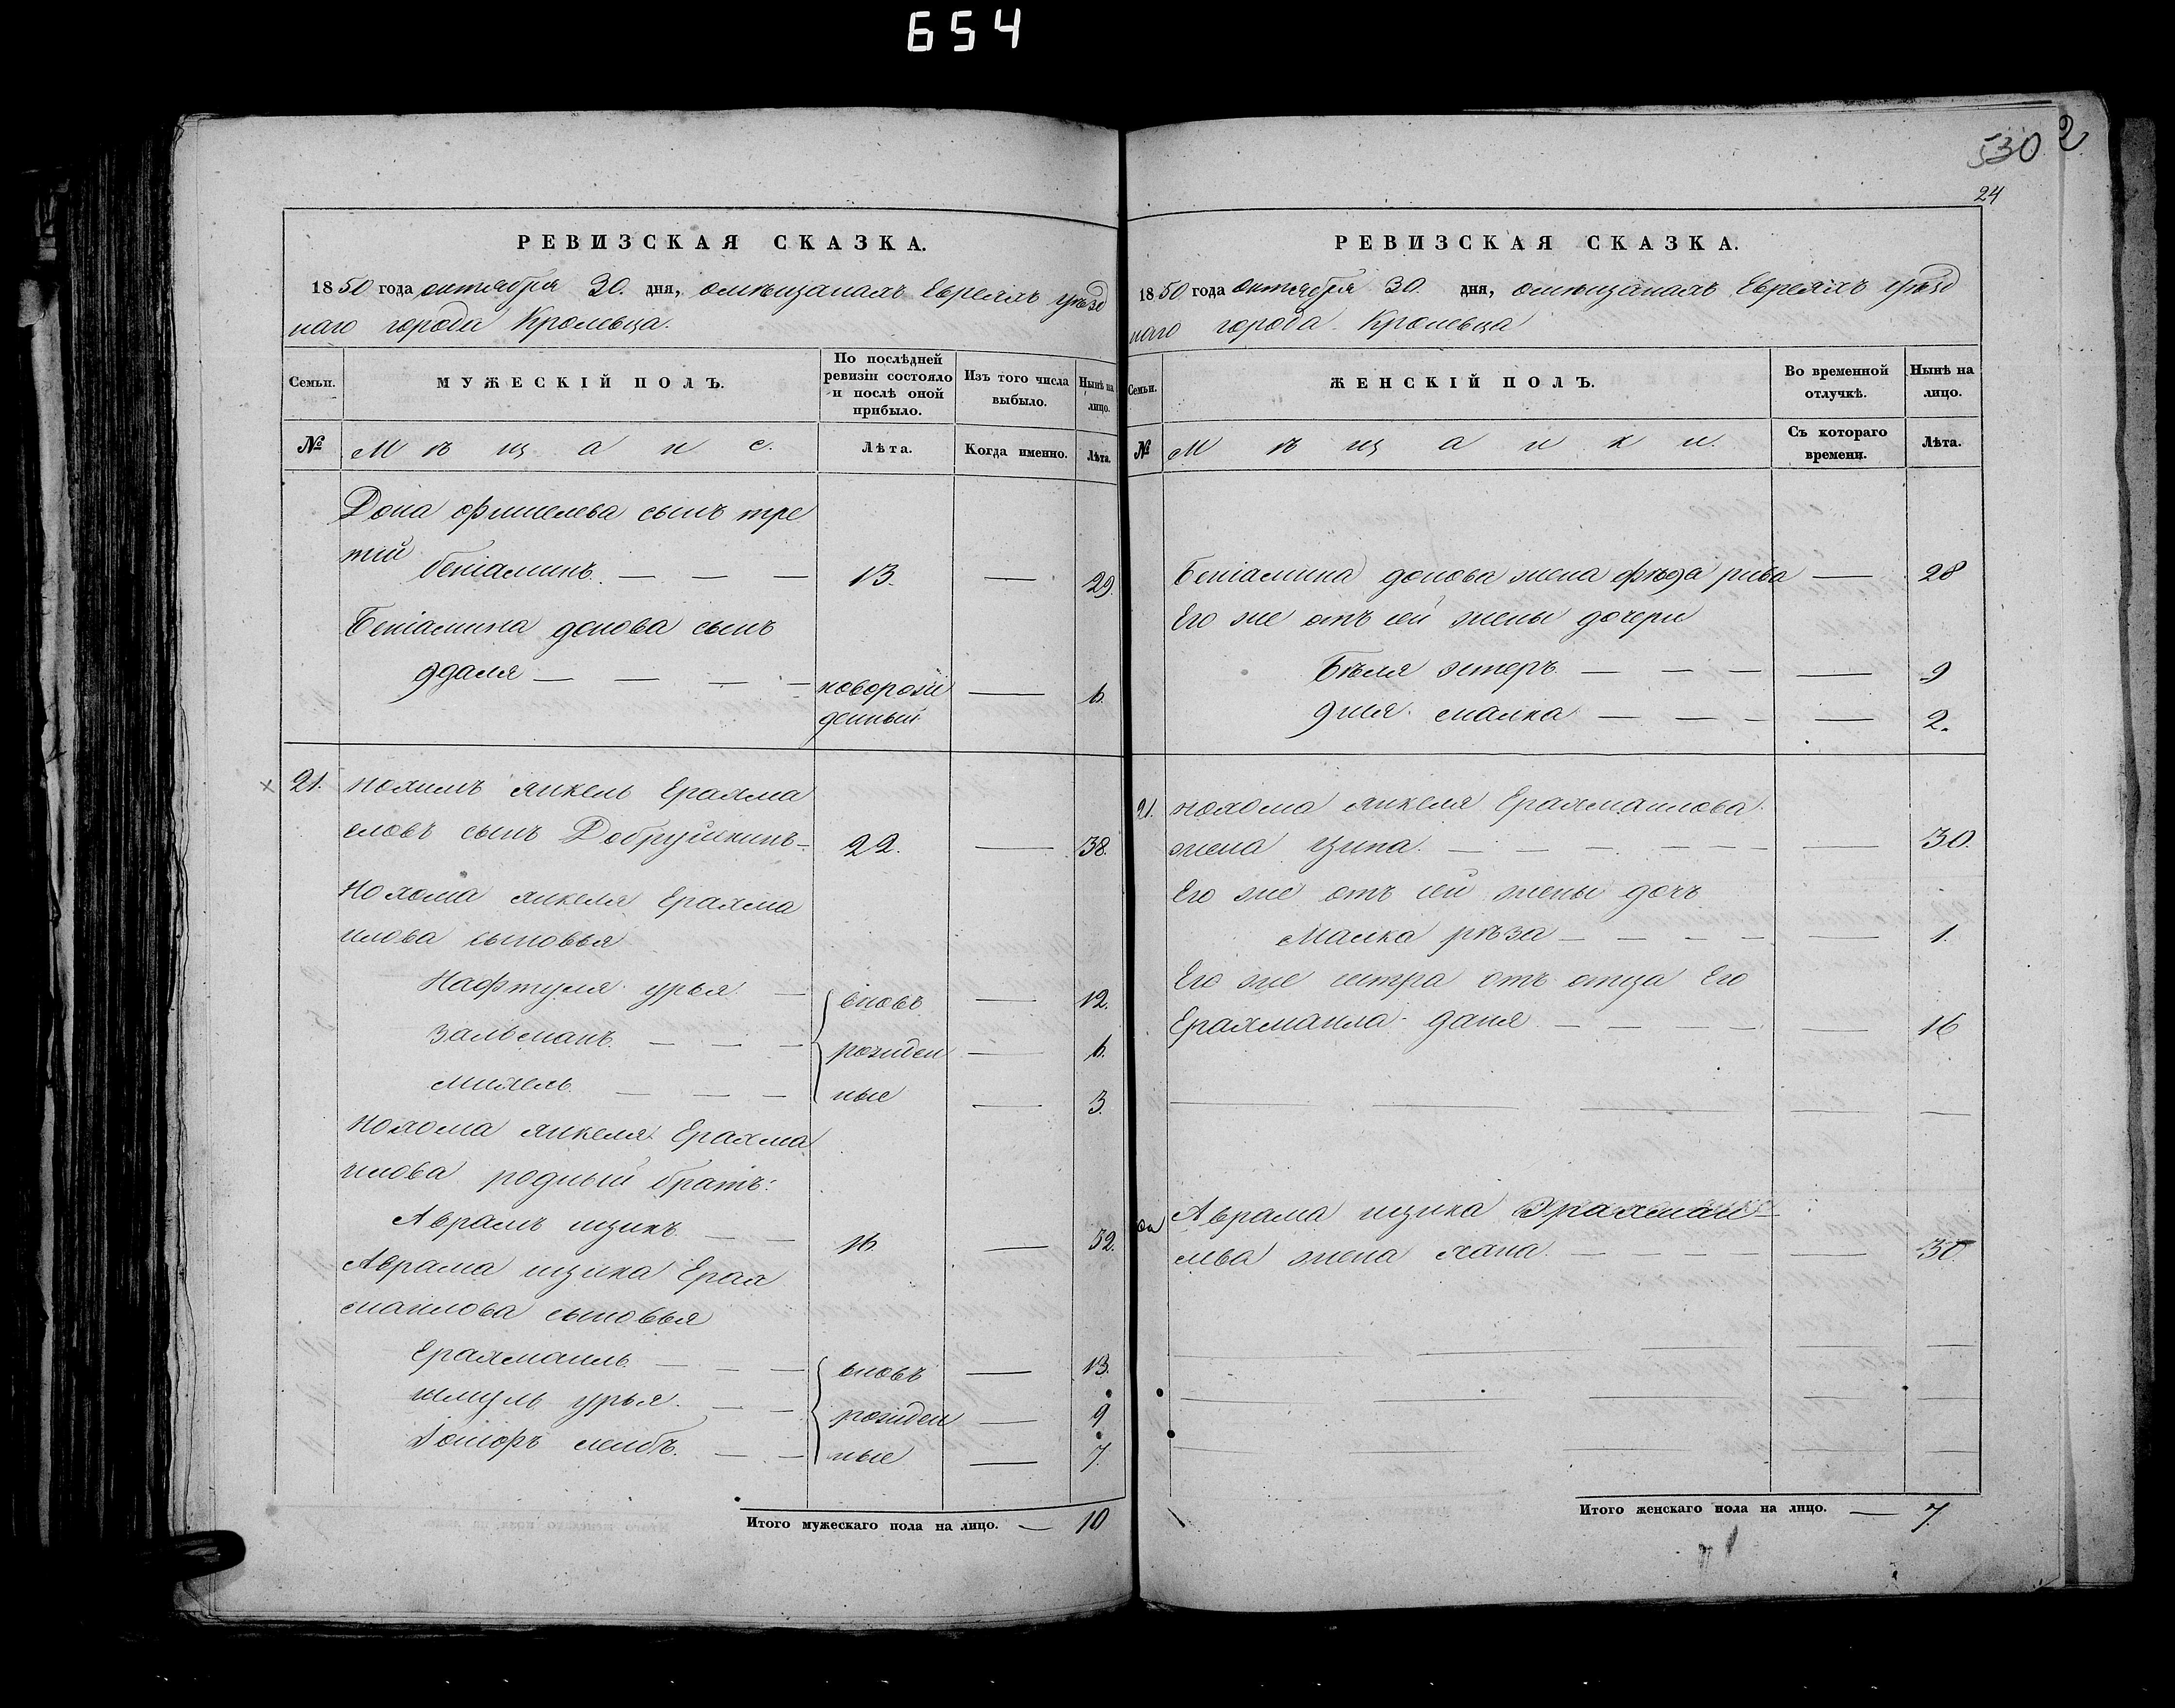 654
РЕВИЗСКАЯ СКАЗКА.
1850 года октября 30. дня, омѣщанахъ Евреяхъ уѣзд
наго города Кролевца.
Семьи.
МУЖЕСКІЙ ПОЛЪ.
По послѣдней
ревизіи состояло
и послѣ оной
прибыло.
Изъ того числа
выбыло.
Нынѣ на
лицо.
№
Мѣщане.
Лѣта.
Когда именно.
Лѣта.
Дона фишелева сынъ тре
тій
беніаминъ. — — — 13. — 29.
Беніамина донова сынъ
— — — — новорож — 6.
денный
21. Нохимъ янкель Ерахма
еловъ сынъ Добрушкинъ — 22. — 38.
Нохома янкеля Ерахма
илова сыновья
Нафтуля урья — вновь — 12.
Зальманъ. — — — рожден — 6.
михель. — — — ные — 3.
Нохома янкеля Ерахма
илова родный братъ:
Аврамъ ицикъ. — — 16. — 32.
Аврама ицика Ерах
маилова сыновья
Ерахмаиль — — — вновь — 13.
шмуль урья. — — рожден — 9
лейбъ. — — ные — 7.
Итого мужескаго пола на лицо. — 10
530
2
24
РЕВИЗСКАЯ СКАЗКА.
1850 года октября 30. дня, омѣщанахъ Евреяхъ уѣзд
наго города Кролевца
Семьи.
ЖЕНСКІЙ ПОЛЪ.
Во временной
отлучкѣ.
Нынѣ на
лицо.
№
Мѣщанки.
Съ котораго
времени.
Лѣта.
Беніамина донова жена фѣйда рива — 28
Его же отъ сей жены дочери
Бѣля эстеръ. — — — — 9
малка — — — — 2.
21. Нохома янкеля Ерахмаилова
жена ципа. — — — — — — — 30.
Его же отъ сей жены дочь
Малка рѣза — — — — — 1.
Его же сестра отъ отца Его
Ерахмаила даня — — — — 16
Аврама ицика Эрахмаи-
лва жена хана. — — — — — 30.
Итого женскаго пола на лицо. — 7.